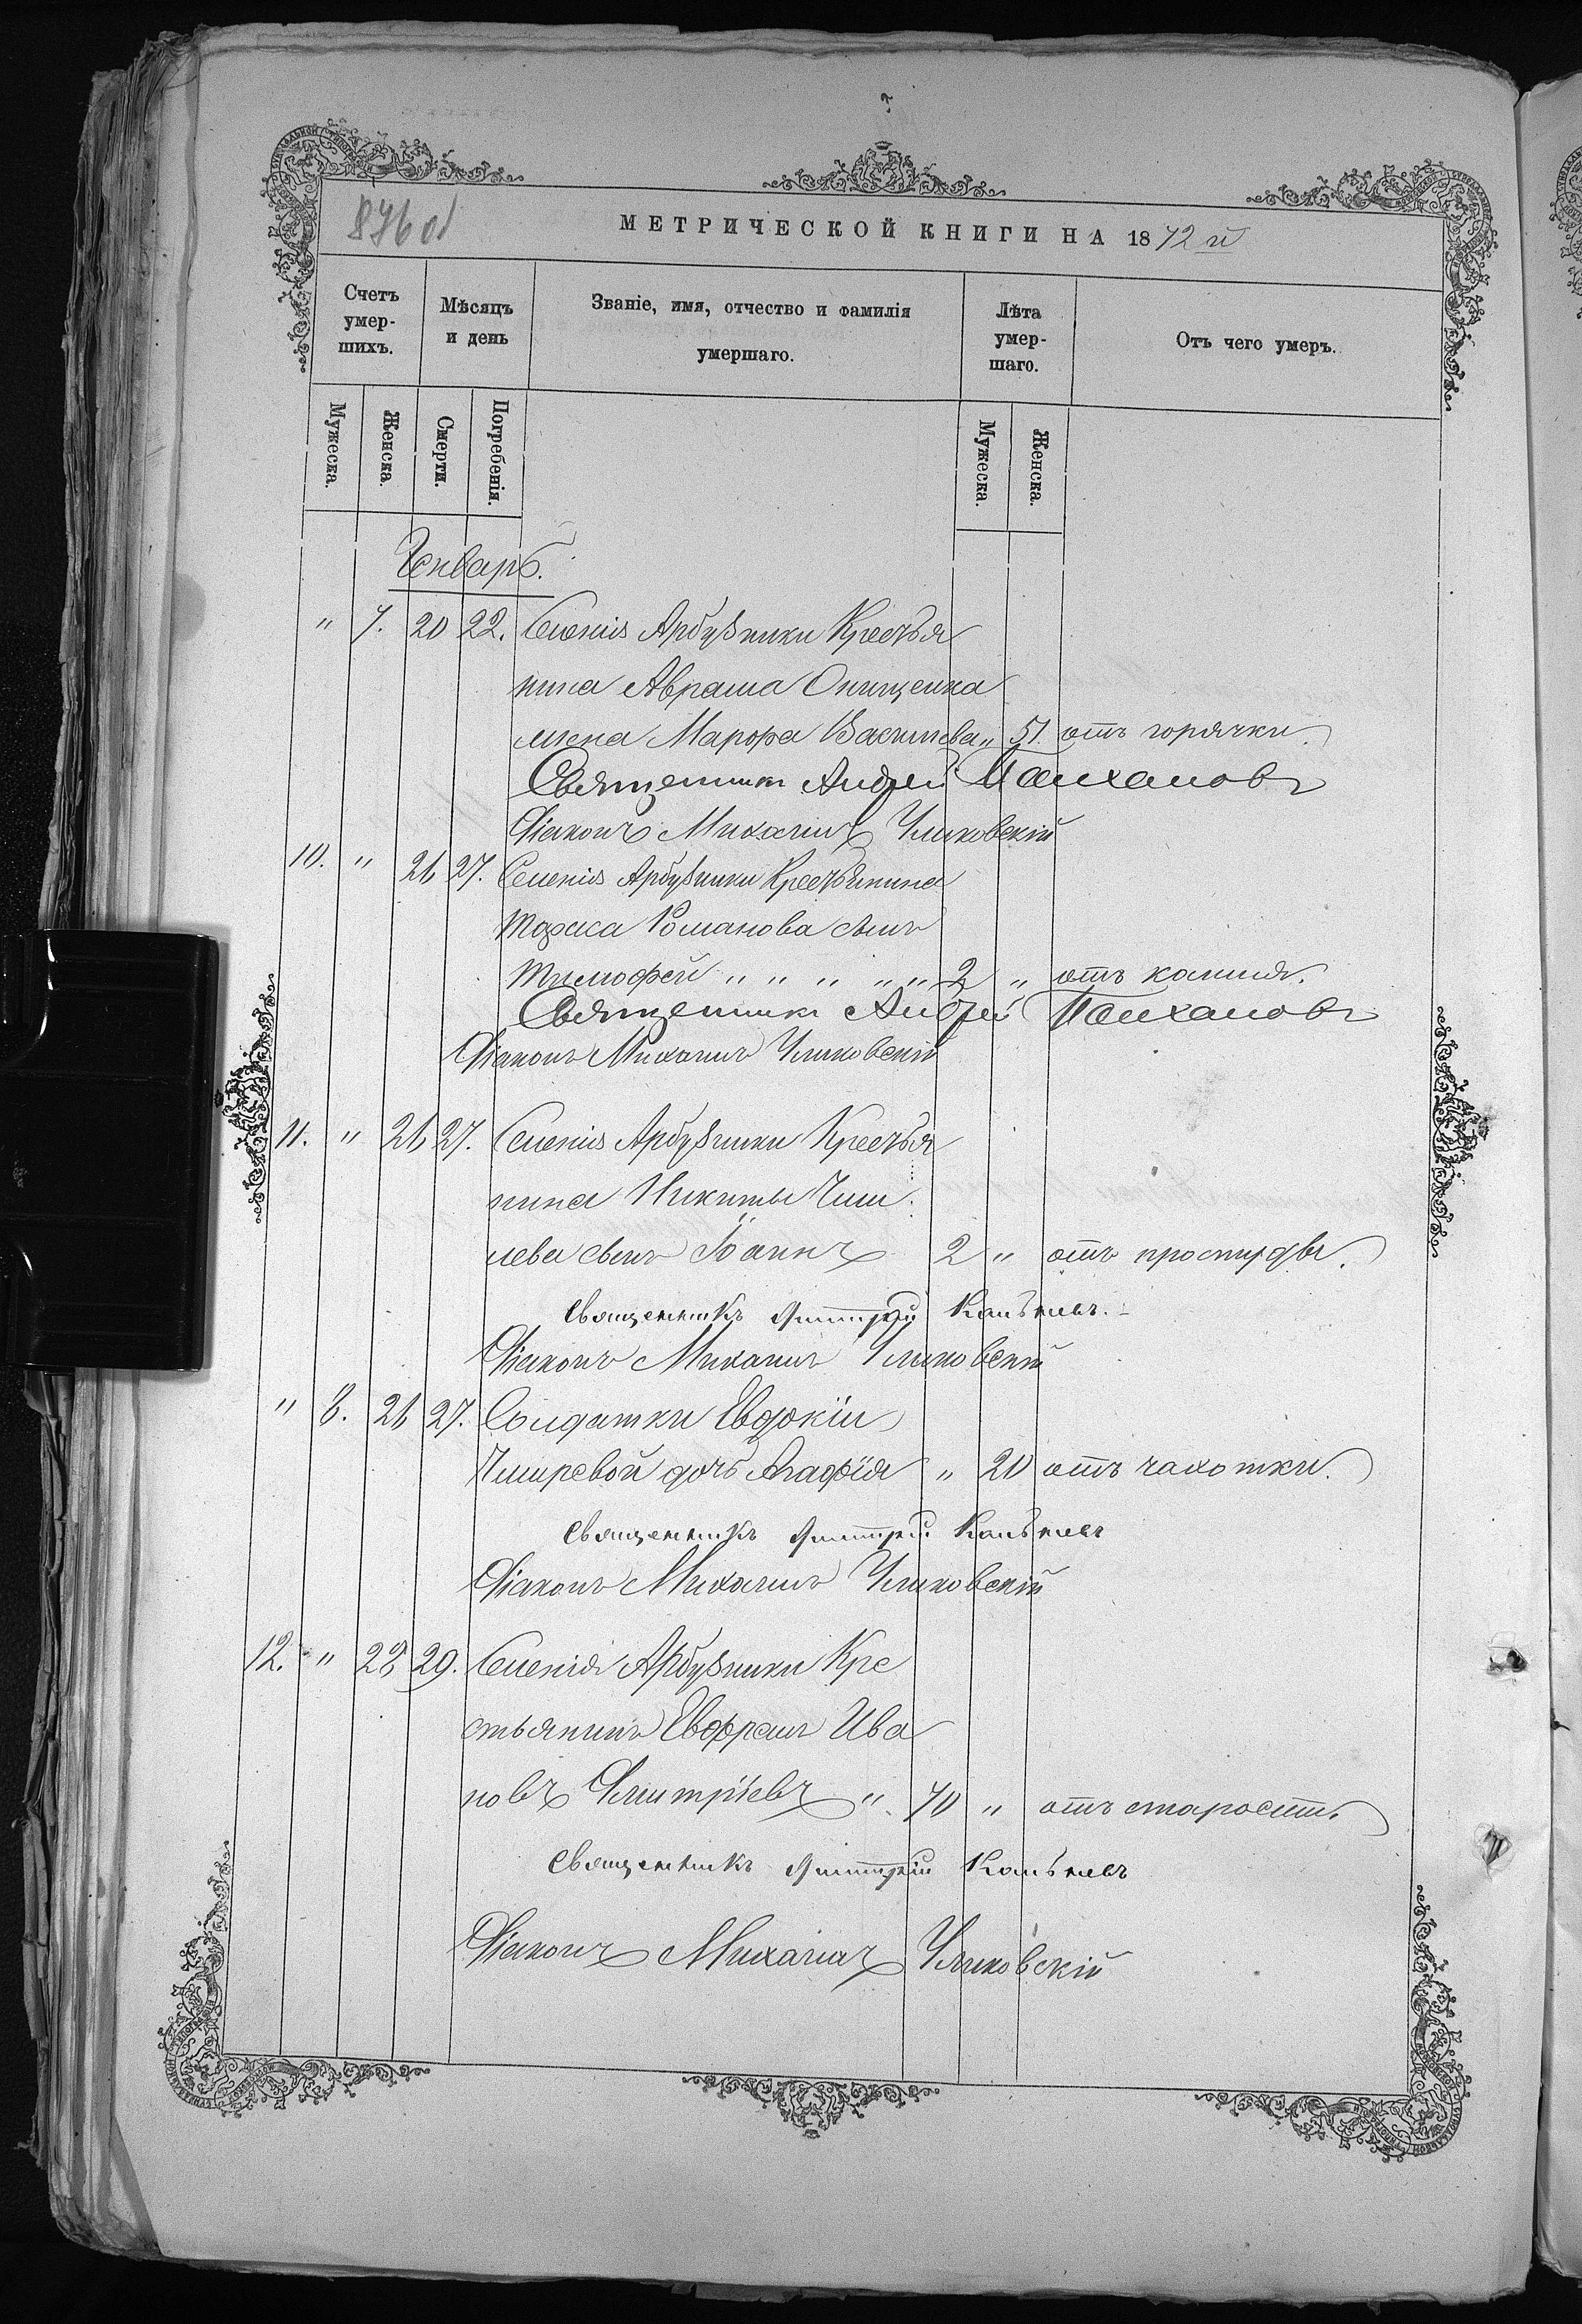 876 об
МЕТРИЧЕСКОЙ КНИГИ НА 1872 й
Счетъ умер-шихъ.
Мѣсяцъ и день
Званіе, имя, отчество и фамилія умершаго.
Лѣта умер-шаго.
Отъ чего умеръ.
Мужеска.
Женска.
Смерти.
Погребенія.
Мужеска.
Женска.
Генварь.
" 7. 20 22. Селенія Арбузинки Крестья
нина Аврама Онищенка
жена Марфа Васильева " 51. отъ горячки.
Священникъ Андрей
Діаконъ Михаилъ
10. " 26 27. Селенія Арбузинки Крестьянина
Тараса Романова сынъ
Тимофей " " " " " 2 " отъ кашля.
Священникъ Андрей
Діаконъ Михаилъ
11. " 26 27. Селенія Арбузинки Крестья
нина Никиты
лева сынъ Іоаннъ 2 " отъ простуды.
Священникъ Димитрій
Діаконъ Михаилъ
" 8. 26 27. Солдатки Евдокіи
дочь Агафія " 20 отъ чахотки.
Священникъ Димитрій
Діаконъ Михаилъ
12. " 28 29. Селенія Арбузинки Кре
стьянинъ Ива
новъ Дмитріевъ " 70 " отъ старости.
Священникъ Димитрій
Діаконъ Михаилъ